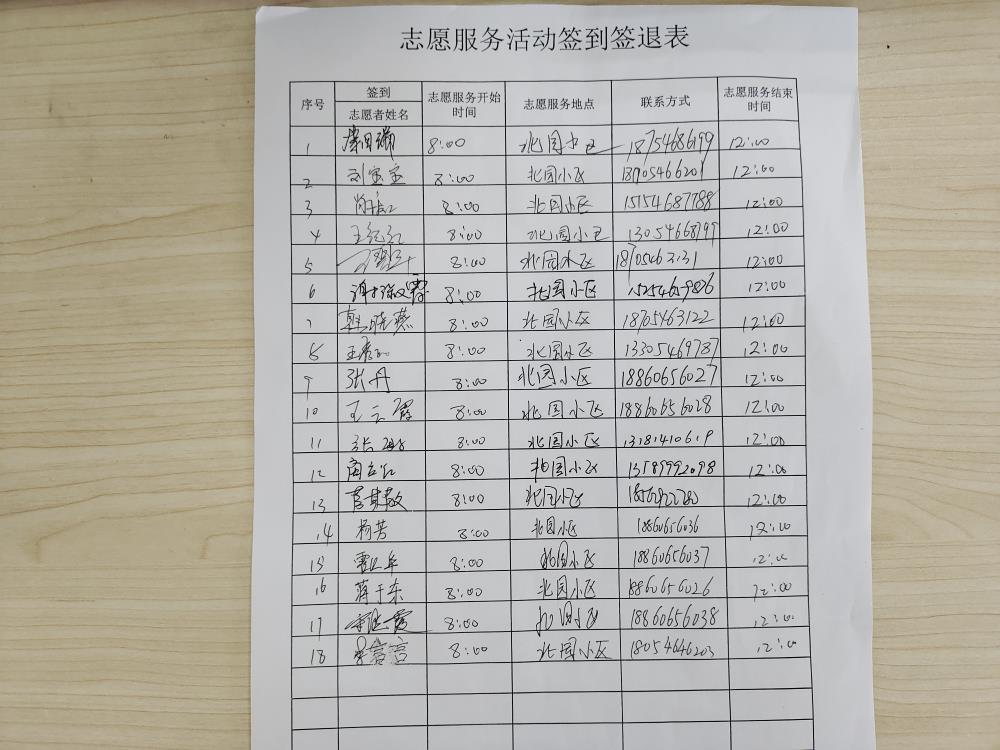 志愿服务活动签到签退表
序号 签到 志愿者姓名 志愿服务开始时间 志愿服务地点 联系方式 志愿服务结束时间
1 8:00 北园小区 18754686199 12:00
2 刘宝宝 8:00 北园小区 18705466201 12:00
3 8:00 北园小区 15154687788 12:00
4 王纪红 8:00 北园小区 13054668799 12:00
5 8:00 北园小区 12:00
6 8:00 北园小区 15254659806 12:00
7 韩晓燕 8:00 北园小区 18705463122 12:00
8 8:00 北园小区 13305469787 12:00
9 张丹 8:00 北园小区 18860656027 12:00
10 王云霞 8:00 北园小区 18860656028 12:00
11 8:00 北园小区 12:00
12 8:00 北园小区 13589992098 12:00
13 8:00 北园小区 12:00
14 杨芳 8:00 北园小区 18860656036 12:00
15 8:00 北园小区 18860656037 12:00
16 蒋于东 8:00 北园小区 18860656026 12:00
17 8:00 北园小区 18860656038 12:00
18 8:00 北园小区 18054646203 12:00